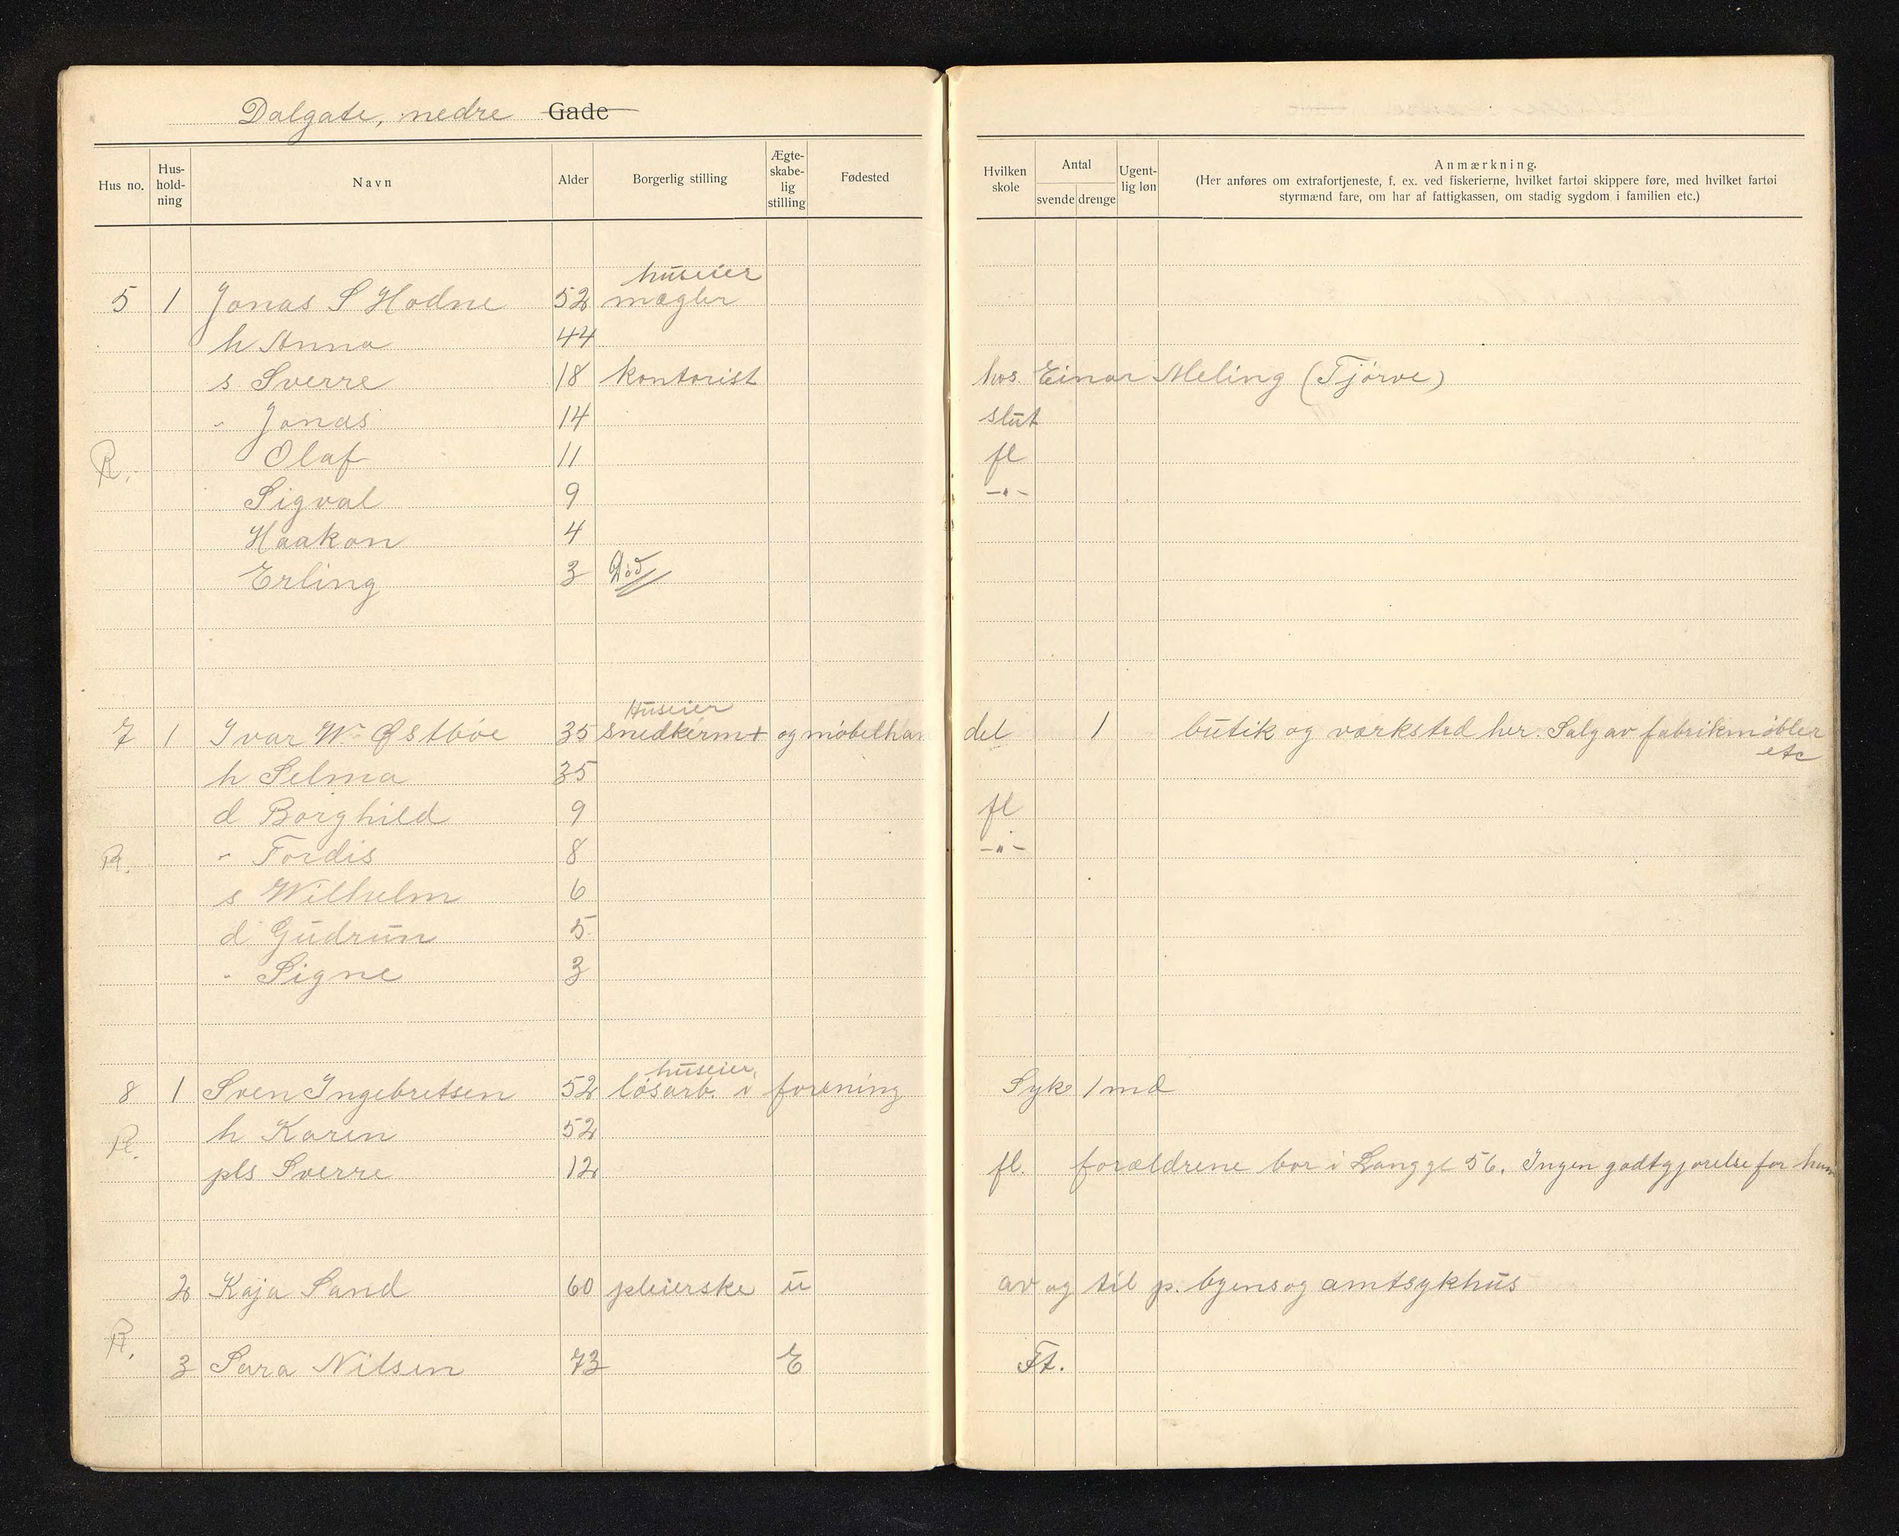 Dalgate, nedre Gade
Hus no. Hus-hold-ning Navn Alder Borgerlig stilling Ægte-skabe-lig stilling Fødested Hvilken skole Antal svende drenge Ugent-lig løn Anmærkning.
(Her anføres om extrafortjeneste, f. ex. ved fiskerierne, hvilket fartøi skippere føre, med hvilket fartøi
styrmænd fare, om har af fattigkassen, om stadig sygdom i familien etc.)
huseier
5 1 Jonas S Hodne 52 mægler
h Anna 44
s Sverre 18 kontorist hos Einar Meling (Tjørve)
" Jonas 14 slut
R. Olaf 11 fl
Sigval 9 -"-
Haakon 4
Erling 3 Død
Huseier
7 1 Ivar Wm Østbøe 35 snedkerm+ og møbelhan del 1 butik og værksted her. Salg av fabrikmøbler
etc
h Selma 35
d Borghild 9 fl
R. " Tordis 8 -"-
s Wilhelm 6
d Gudrun 5
" Signe 3
huseier
8 1 Sven Ingebretsen 52 løsarb. i forening Syk 1 md
R. h Karen 52
pls Sverre 12 fl. forældrene bor i Langgt 56. Ingen godtgjørelse for ham
2 Kaja Sand 60 pleierske u av og til p. byens og amtsykhus
R.
3 Sara Nilsen 73 E Ft.